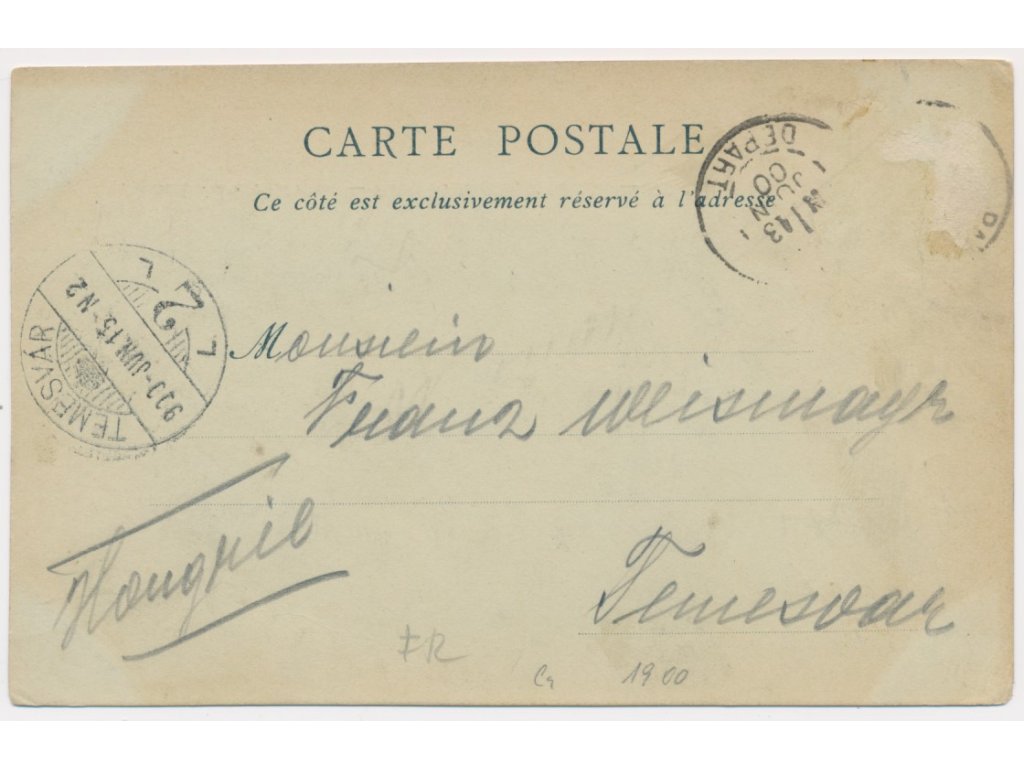 CARTE POSTALE
Ce côté est exclusivement réservé à l'adresse
DÉPART
13
JUIN
00
TEMESVÁR
900 - JUN. 15 - N2
Monsieur
Franz Weismayr
Hongrie
Temesvar
FR
Ca 1900